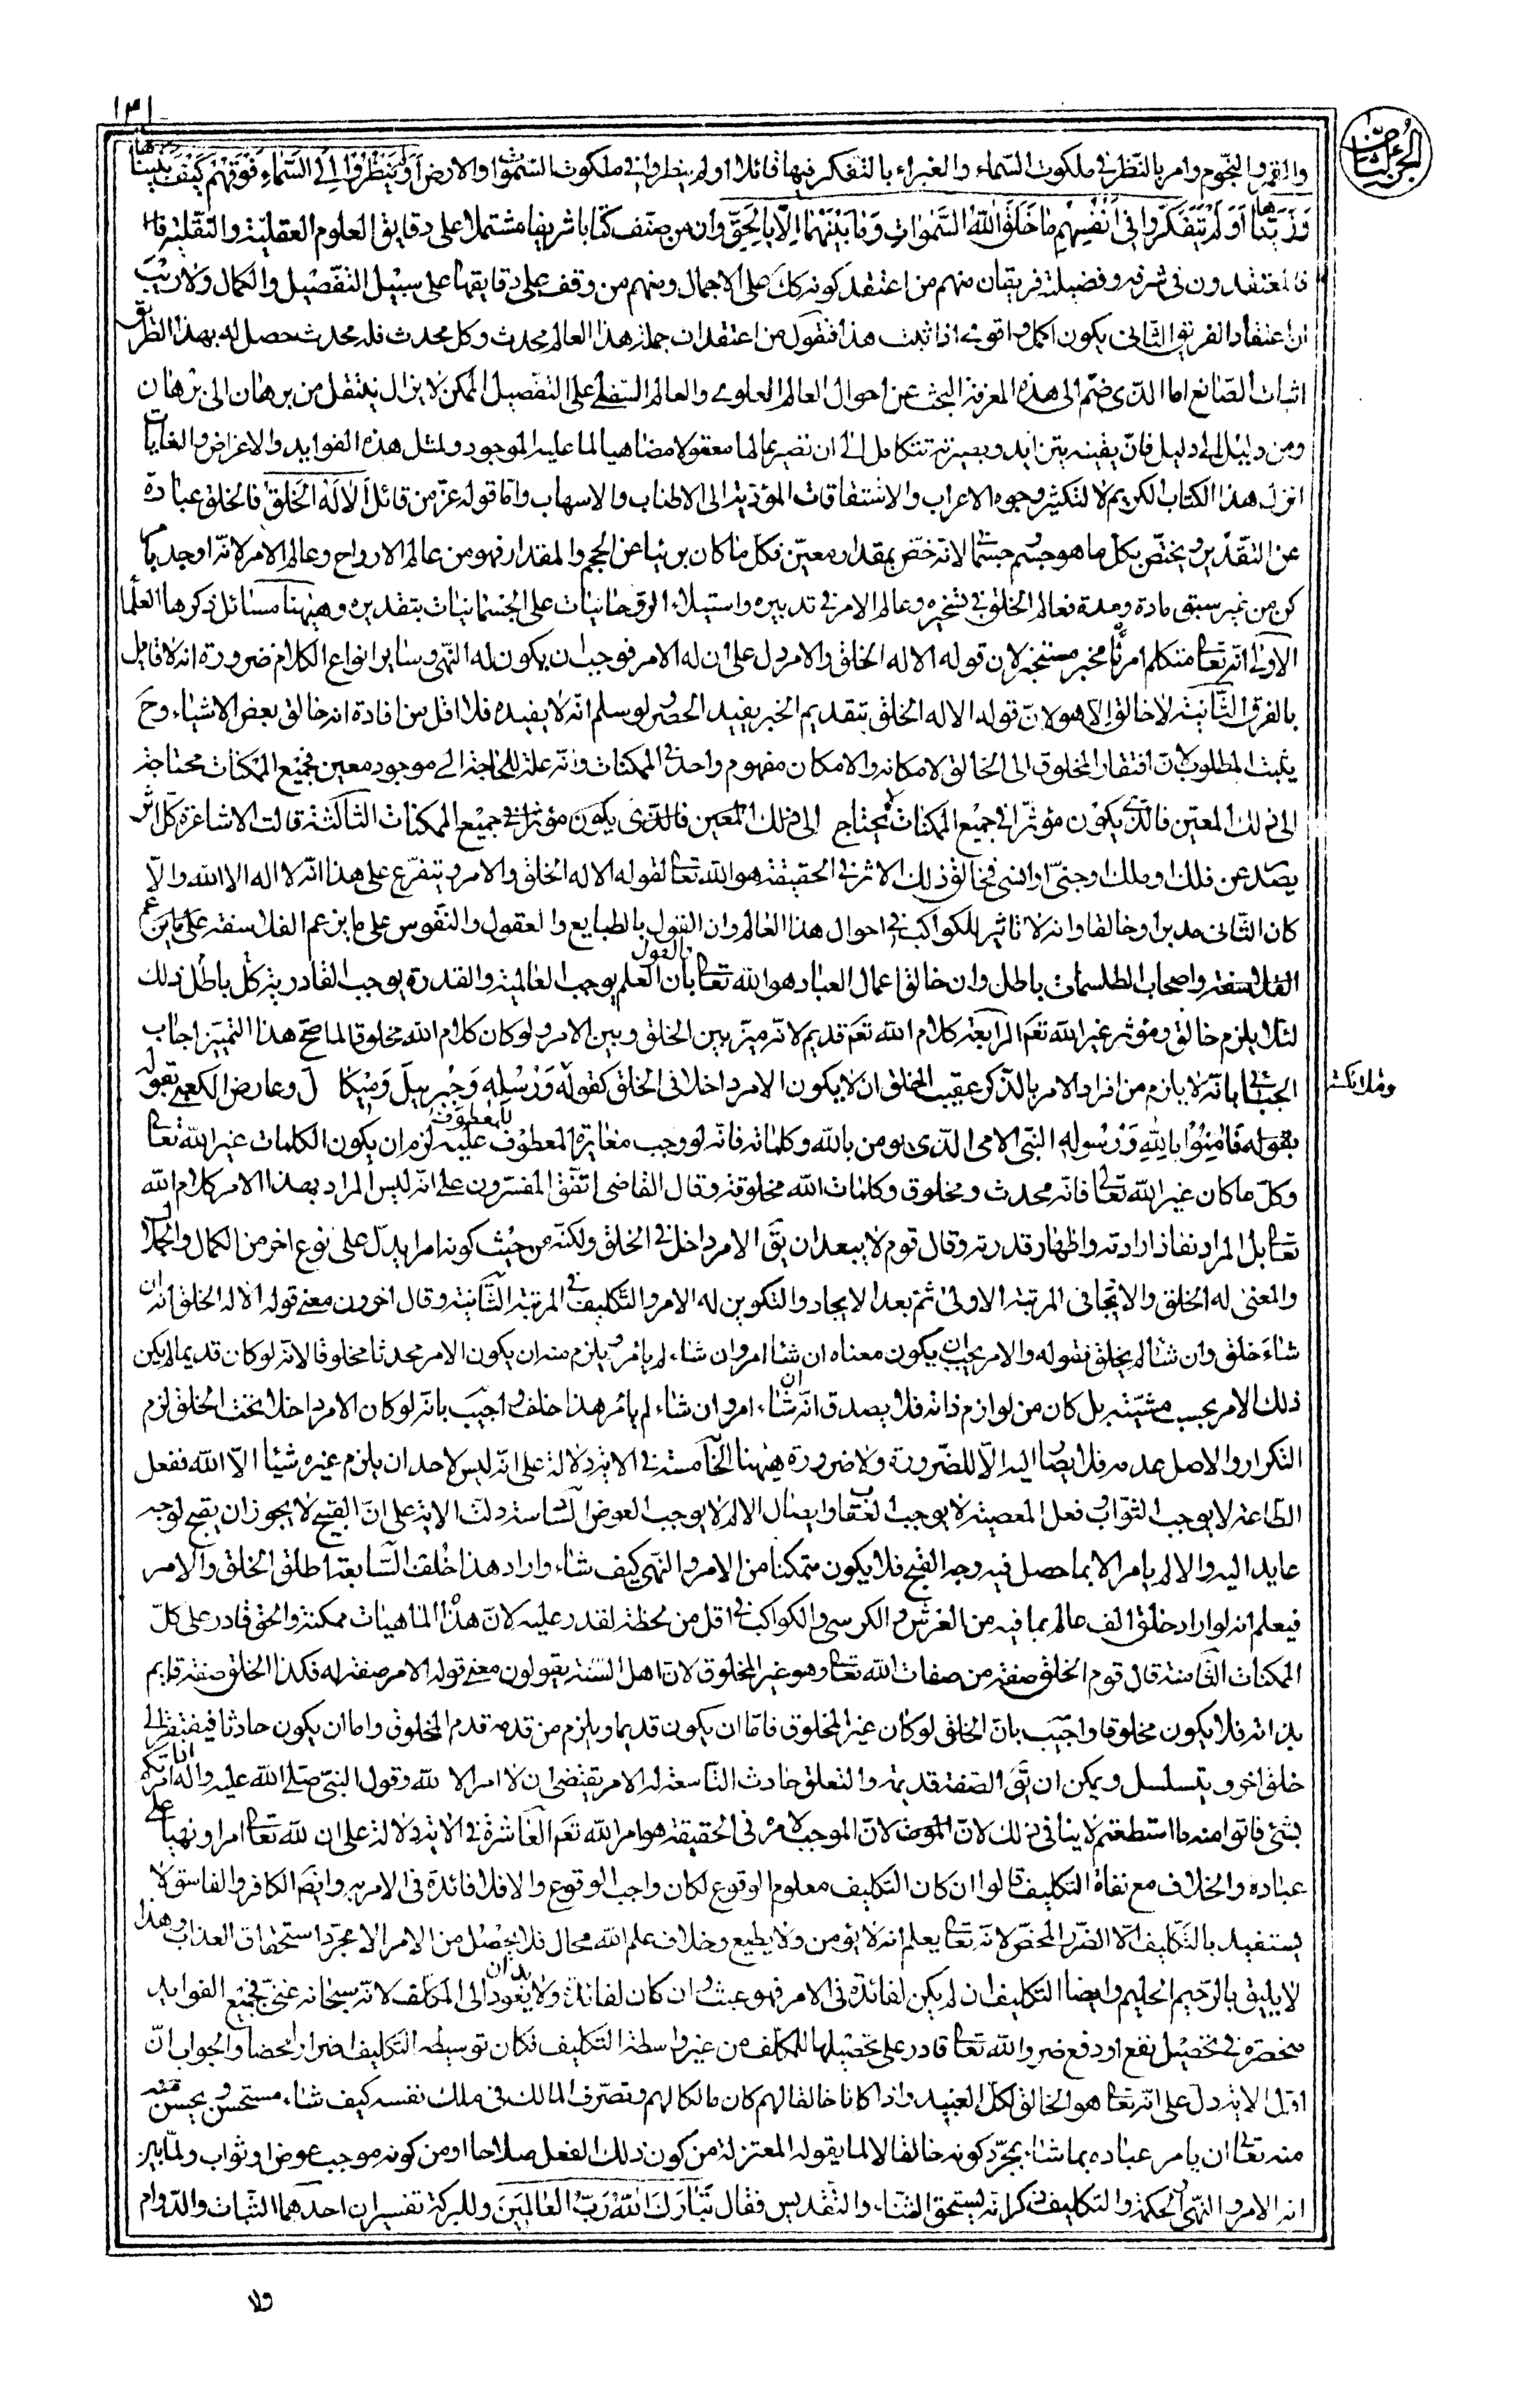 ١٣١
الجزء الثامن
والقمر والنجوم وامر بالنظر فى ملكوت السماء والغبراء بالتفكر فيها قائلا اولم ينظروا فى ملكوت السموات والارض اولم ينظروا الى السماء فوقهم كيف بنيناها
وزيناها اولم يتفكروا فى انفسهم ما خلق الله السموات وما بينهما الا بالحق وان من صنف كتابا شريفا مشتملا على دقايق العلوم العقلية والنقلية
فالمعتقدون فى شرفه وفضيلته فريقان منهم من اعتقد كونه كك على الاجمال ومنهم من وقف على دقايقها على سبيل التفصيل والكمال ولا ريب
ان اعتقاد الفريق الثانى يكون اكمل واقوى اذا ثبت هذا فنقول من اعتقد ان جملة هذا العالم محدث وكل محدث فله محدث حصل له بهذا الطريق
اثبات الصانع اما الذى ضم الى هذه المعرفة البحث عن احوال العالم العلوى والعالم السفلى على التفصيل الممكن لا يزال ينتقل من برهان الى برهان
ومن دليل الى دليل فان يقينه يتزايد وبصيرته تتكامل الى ان تصير عالما معقولا مضاهيا لما عليه الموجود ولمثل هذه الفوايد والاغراض والغايات
انزل هذا الكتاب الكريم لا لتكثير وجوه الاعراب والاشتقاقات المؤدية الى الاطناب والاسهاب واما قوله عز من قائل الا له الخلق فالخلق عبارة
عن التقدير ويختص بكل ما هو جسم وجسمانى لانه خص بمقدار معين فكل ما كان بريئا عن الحجم والمقدار فهو من عالم الارواح وعالم الامر لانه اوجد بامر
كن من غير سبق مادة ومدة فعالم الخلق فى تسخيره وعالم الامر فى تدبيره واستيلاء الروحانيات على الجسمانيات بتقديره وههنا مسائل ذكرها العلماء
الاولى انه تعالى متكلم امر ناه مخبر مستخبر لان قوله الا له الخلق والامر دل على ان له الامر فوجب ان يكون له النهى وساير انواع الكلام ضرورة انه لا قايل
بالفرق الثانية لا خالق الا هو لان قوله الا له الخلق بتقديم الخبر يفيد الحصر ولو سلم انه لا يفيده فلا اقل من افادة انه خالق بعض الاشياء وح
يثبت المطلوب لان افتقار المخلوق الى الخالق لامكانه والامكان مفهوم واحد فى الممكنات وانه علة للحاجة الى موجود معين فجميع الممكنات محتاجة
الى ذلك المعين فالذى يكون مؤثرا فى جميع الممكنات يحتاج الى ذلك المعين فالذى يكون مؤثرا فى جميع الممكنات الثالثة قالت الاشاعرة كل اثر
يصدر عن فلك او ملك او جنى او انسى فخالق ذلك الاثر فى الحقيقة هو الله تعالى لقوله الا له الخلق والامر ويتفرع على هذا انه لا اله الا الله والا
كان الثانى مدبرا وخالقا وانه لا تاثير للكواكب فى احوال هذا العالم وان القول بالطبايع والعقول والنفوس على ما يزعم الفلاسفة على ما يزعم
بالقول
الفلاسفة واصحاب الطلسمات باطل وان خالق اعمال العباد هو الله تعالى بان العلم يوجب العالمية والقدرة يوجب القادرية كل باطل ذلك
لئلا يلزم خالق ومؤثر غير الله تعم الرابعة كلام الله تعم قديم لانه ميز بين الخلق وبين الامر ولو كان كلام الله مخلوقا لما صح هذا التمييز اجاب
الجبائى بانه لا يلزم من افراد الامر بالذكر عقيب الخلق ان لا يكون الامر داخلا فى الخلق كقوله ورسله وجبريل وميكال وعارض الكعبى بقوله
وملائكته
بقوله فامنوا بالله ورسوله النبى الامى الذى يومن بالله وكلماته فانه لو وجب مغايرة المعطوف عليه لزم ان يكون الكلمات غير الله تعالى
للمعطوف
وكل ما كان غير الله تعالى فانه محدث ومخلوق وكلمات الله مخلوقة وقال القاضى اتفق المفسرون على انه ليس المراد بهذا الامر كلام الله
تعالى بل المراد نفاذ ارادته واظهار قدرته وقال قوم لا يبعد ان يق الامر داخل فى الخلق ولكنه من حيث كونه امرا يدل على نوع اخر من الكمال والجلال
والمعنى له الخلق والايجاد فى المرتبة الاولى ثم بعد الايجاد والتكوين له الامر والتكليف فى المرتبة الثانية وقال اخرون معنى قوله الا له الخلق انه ان
شاء خلق وان شاء لم يخلق فقوله والامر يجب ان يكون معناه ان شاء امر وان شاء لم يامر ويلزم منه ان يكون الامر محدثا مخلوقا لانه لو كان قديما لم يكن
ذلك الامر بحسب مشيته بل كان من لوازم ذاته فلا يصدق انه ان شاء امر وان شاء لم يامر هذا خلف واجيب بانه لو كان الامر داخلا تحت الخلق لزم
التكرار والاصل عدمه فلا يصار اليه الا للضرورة ولا ضرورة ههنا الخامسة فى الاية دلالة على انه ليس لاحد ان يلزم غيره شيئا الا الله ففعل
الطاعة لا يوجب الثواب وفعل المعصية لا يوجب العقاب وايصال الالم لا يوجب العوض السادسة دلت الاية على ان القبيح لا يجوز ان يقبح لوجه
عايد اليه والا لم يامر الا بما حصل فيه وجه القبح فلا يكون متمكنا من الامر والنهى كيف شاء واراد هذا خلف السابعة اطلق الخلق والامر
فيعلم انه لو اراد خلق الف عالم بما فيه من العرش والكرسى والكواكب فى اقل من لحظة لقدر عليه لان هذه الماهيات ممكنة والحق قادر على كل
الممكنات الثامنة قال قوم الخلق صفة من صفات الله تعالى وهو غير المخلوق لان اهل السنة يقولون معنى قوله الامر صفة له فكذا الخلق صفة قايم
بذاته فلا يكون مخلوقا واجيب بان الخلق لو كان غير المخلوق فاما ان يكون قديما ويلزم من قدمه قدم المخلوق واما ان يكون حادثا فيفتقر الى
خلق اخر ويتسلسل ويمكن ان يق الصفة قديمة والتعلق حادث التاسعة له الامر يقتضى ان لا امر الا لله وقول النبى صلى الله عليه واله اذا امرتكم
بشئ فاتوا منه ما استطعتم لا ينافى ذلك لان الموجب لامره فى الحقيقة هو امر الله تعم العاشرة فى الاية دلالة على ان لله تعالى امرا ونهيا على
عباده والخلاف مع نفاة التكليف قالوا ان كان التكليف معلوم الوقوع لكان واجب الوقوع والا فلا فائدة فى الامر به وايضا الكافر والفاسق لا
يستفيد بالتكليف الا الضرر المحض لانه تعالى يعلم انه لا يؤمن ولا يطيع وخلاف علم الله محال فلا يحصل من الامر الا مجرد استحقاق العذاب وهذا
لا يليق بالرحيم الحليم وايضا التكليف ان لم يكن لفائدة فى الامر فهو عبث وان كان لفائدة ولا بد ان يعود الى المكلف لانه سبحانه غنى فجميع الفوايد
منحصرة فى تحصيل نفع او دفع ضرر والله تعالى قادر على تحصيلها للمكلف من غير واسطة التكليف فكان توسيط التكليف اضرارا محضا والجواب ان
اول الاية دل على انه تعالى هو الخالق لكل العبيد واذا كان خالقا لهم كان مالكا لهم وتصرف المالك فى ملك نفسه كيف شاء مستحسن ويحسن منه
منه تعالى ان يامر عباده بما شاء بمجرد كونه خالقا لا لما يقوله المعتزلة من كون ذلك الفعل صلاحا او من كونه موجب عوض او ثواب ولما بين
انه الامر والنهى والحكمة والتكليف ذكر انه يستحق الثناء والتقديس فقال تبارك الله رب العالمين وللبركة تفسيران احدهما الثبات والدوام
ولا